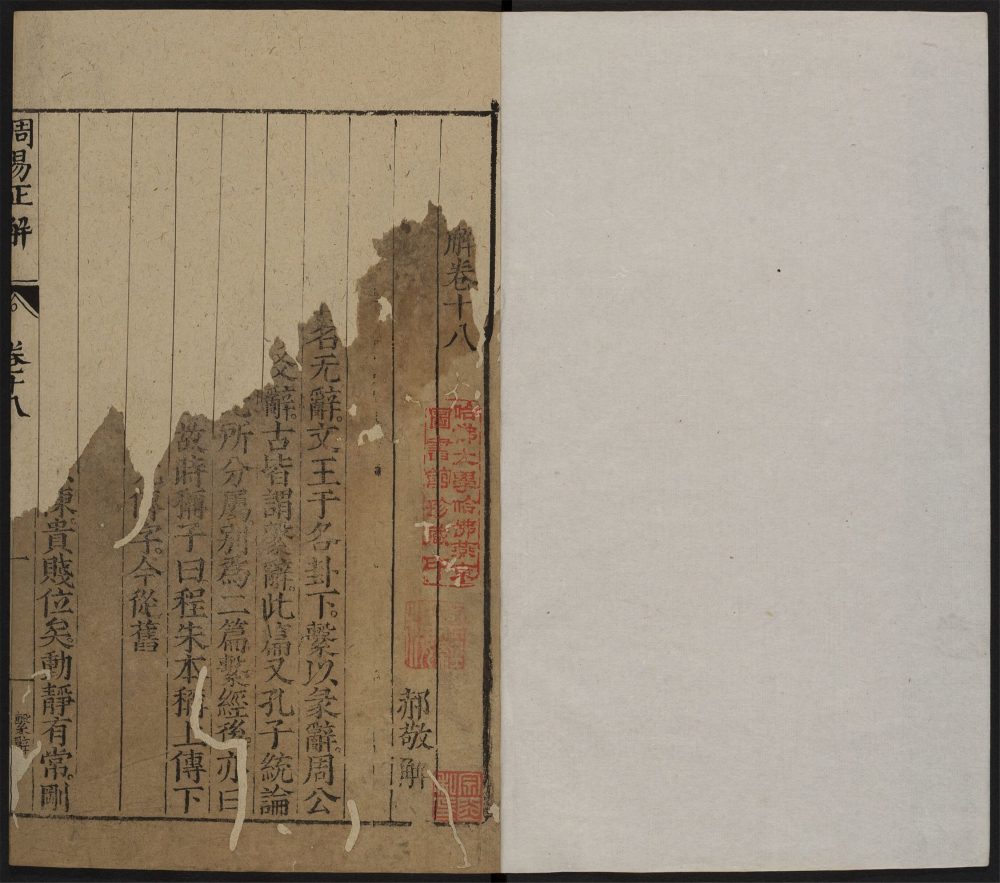 解卷十八
郝敬解
名无辭。文王于名卦下。繫以彖辭。周公
爻辭。古皆謂繫辭。此篇又孔子統論
所分屬。別為二篇。繫經後。亦曰
故時彌子曰程朱本稱上傳下
傳字。今從舊
陳貴賤位矣動靜有常。剛
周易正解
卷十八
一
繫辭
哈佛大學哈佛燕京
圖書館珍藏印